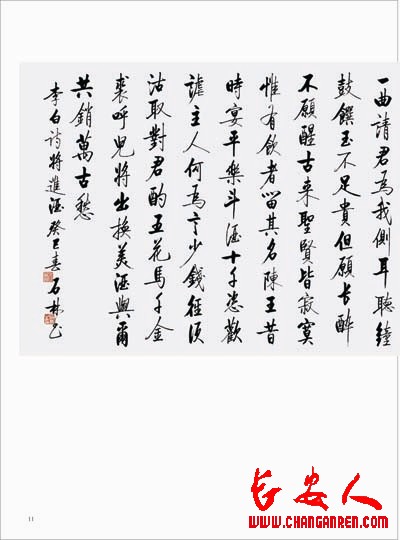 一曲請君為我側耳聽鐘
鼓饌玉不足貴但願長醉
不願醒古来聖賢皆寂寞
惟有飲者留其名陳王昔
時宴平樂斗酒十千恣歡
謔主人何為言少錢徑須
沽取對君酌五花馬千金
裘呼兒將出換美酒與爾
共銷萬古愁
李白詩將進酒癸巳春石林書
11
长安人
WWW.CHANGANREN.COM